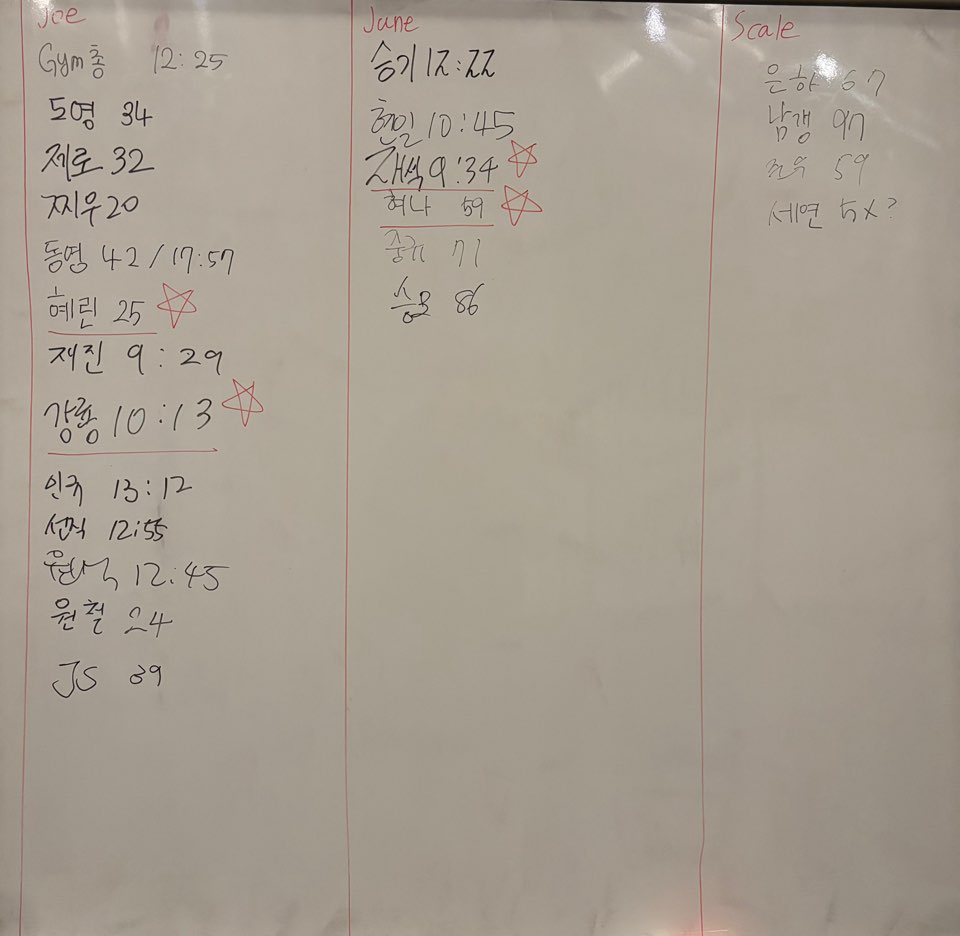 Joe
Gym총 12:25
도영 34
제로 32
찌우 20
동영 42/17:57
혜린 25
재진 9:29
강룡 10:13
인규 13:12
선직 12:55
원석 12:45
원철 24
JS 39
June
승기 12:22
현일 10:45
9:34
혀나 59
중규 71
86
Scale
은하 67
남갱 97
59
세연 5X?